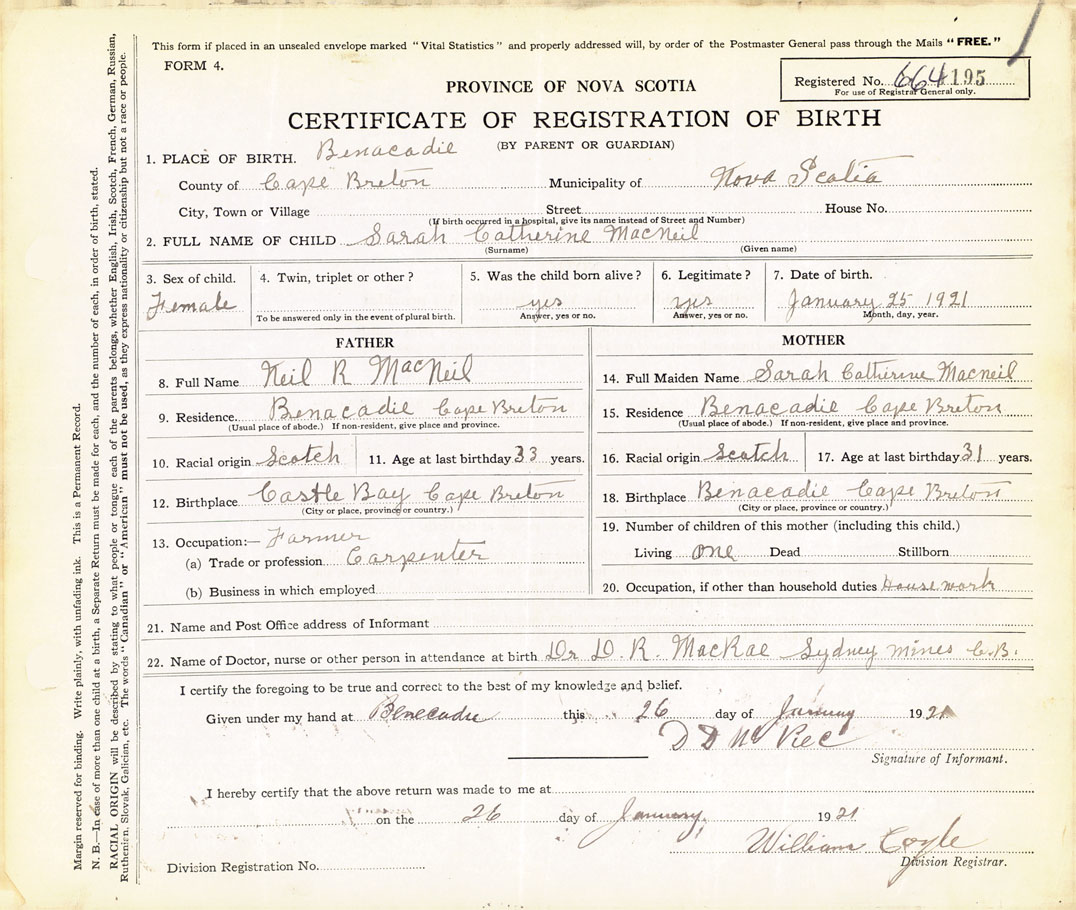 This form if placed in an unsealed envelope marked "Vital Statistics" and properly addressed will, by order of the Postmaster General pass through the Mails "FREE."
FORM 4.
Registered No. 664195
For use of Registrar General only.
PROVINCE OF NOVA SCOTIA
CERTIFICATE OF REGISTRATION OF BIRTH
(BY PARENT OR GUARDIAN)
1. PLACE OF BIRTH. Benacadie
County of Cape Breton Municipality of Nova Scotia
City, Town or Village Street House No.
(If birth occurred in a hospital, give its name instead of Street and Number)
2. FULL NAME OF CHILD Sarah Catherine MacNeil
(Surname) (Given name)
3. Sex of child. 4. Twin, triplet or other? 5. Was the child born alive? 6. Legitimate? 7. Date of birth.
Female yes yes January 25 1921
To be answered only in the event of plural birth. Answer, yes or no. Answer, yes or no. Month, day, year.
FATHER
8. Full Name Neil R MacNeil
9. Residence. Benacadie Cape Breton
(Usual place of abode.) If non-resident, give place and province.
10. Racial origin Scotch 11. Age at last birthday 33 years.
12. Birthplace Castle Bay Cape Breton
(City or place, province or country.)
13. Occupation:— Farmer
(a) Trade or profession Carpenter
(b) Business in which employed
MOTHER
14. Full Maiden Name Sarah Catherine Macneil
15. Residence Benacadie Cape Breton
(Usual place of abode.) If non-resident, give place and province.
16. Racial origin Scotch 17. Age at last birthday 31 years.
18. Birthplace Benacadie Cape Breton
(City or place, province or country.)
19. Number of children of this mother (including this child.)
Living one Dead Stillborn
20. Occupation, if other than household duties House work
21. Name and Post Office address of Informant
22. Name of Doctor, nurse or other person in attendance at birth Dr D. R. MacRae Sydney mines C.B.
I certify the foregoing to be true and correct to the best of my knowledge and belief.
Given under my hand at Benecadie this 26 day of January 1921
D D
Signature of Informant.
I hereby certify that the above return was made to me at
on the 26 day of January, 1921
William Coyle
Division Registrar.
Division Registration No.
Margin reserved for binding. Write plainly, with unfading ink. This is a Permanent Record.
N. B.—In case of more than one child at a birth, a Separate Return must be made for each, and the number of each, in order of birth, stated.
RACIAL ORIGIN will be described by stating to what people or tongue each of the parents belongs, whether English, Irish, Scotch, French, German, Russian,
Ruthenian, Slovak, Galician, etc. The words "Canadian" or "American" must not be used, as they express nationality or citizenship but not a race or people.